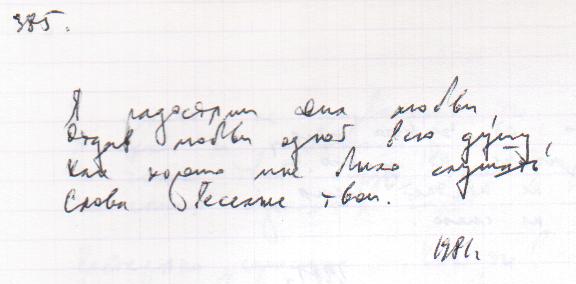 385.
Я радостнии сына любви
Отдав любви одной всю душу,
Как хорошо мне Лихо слушать,
Слова Песенные твои.
1981г